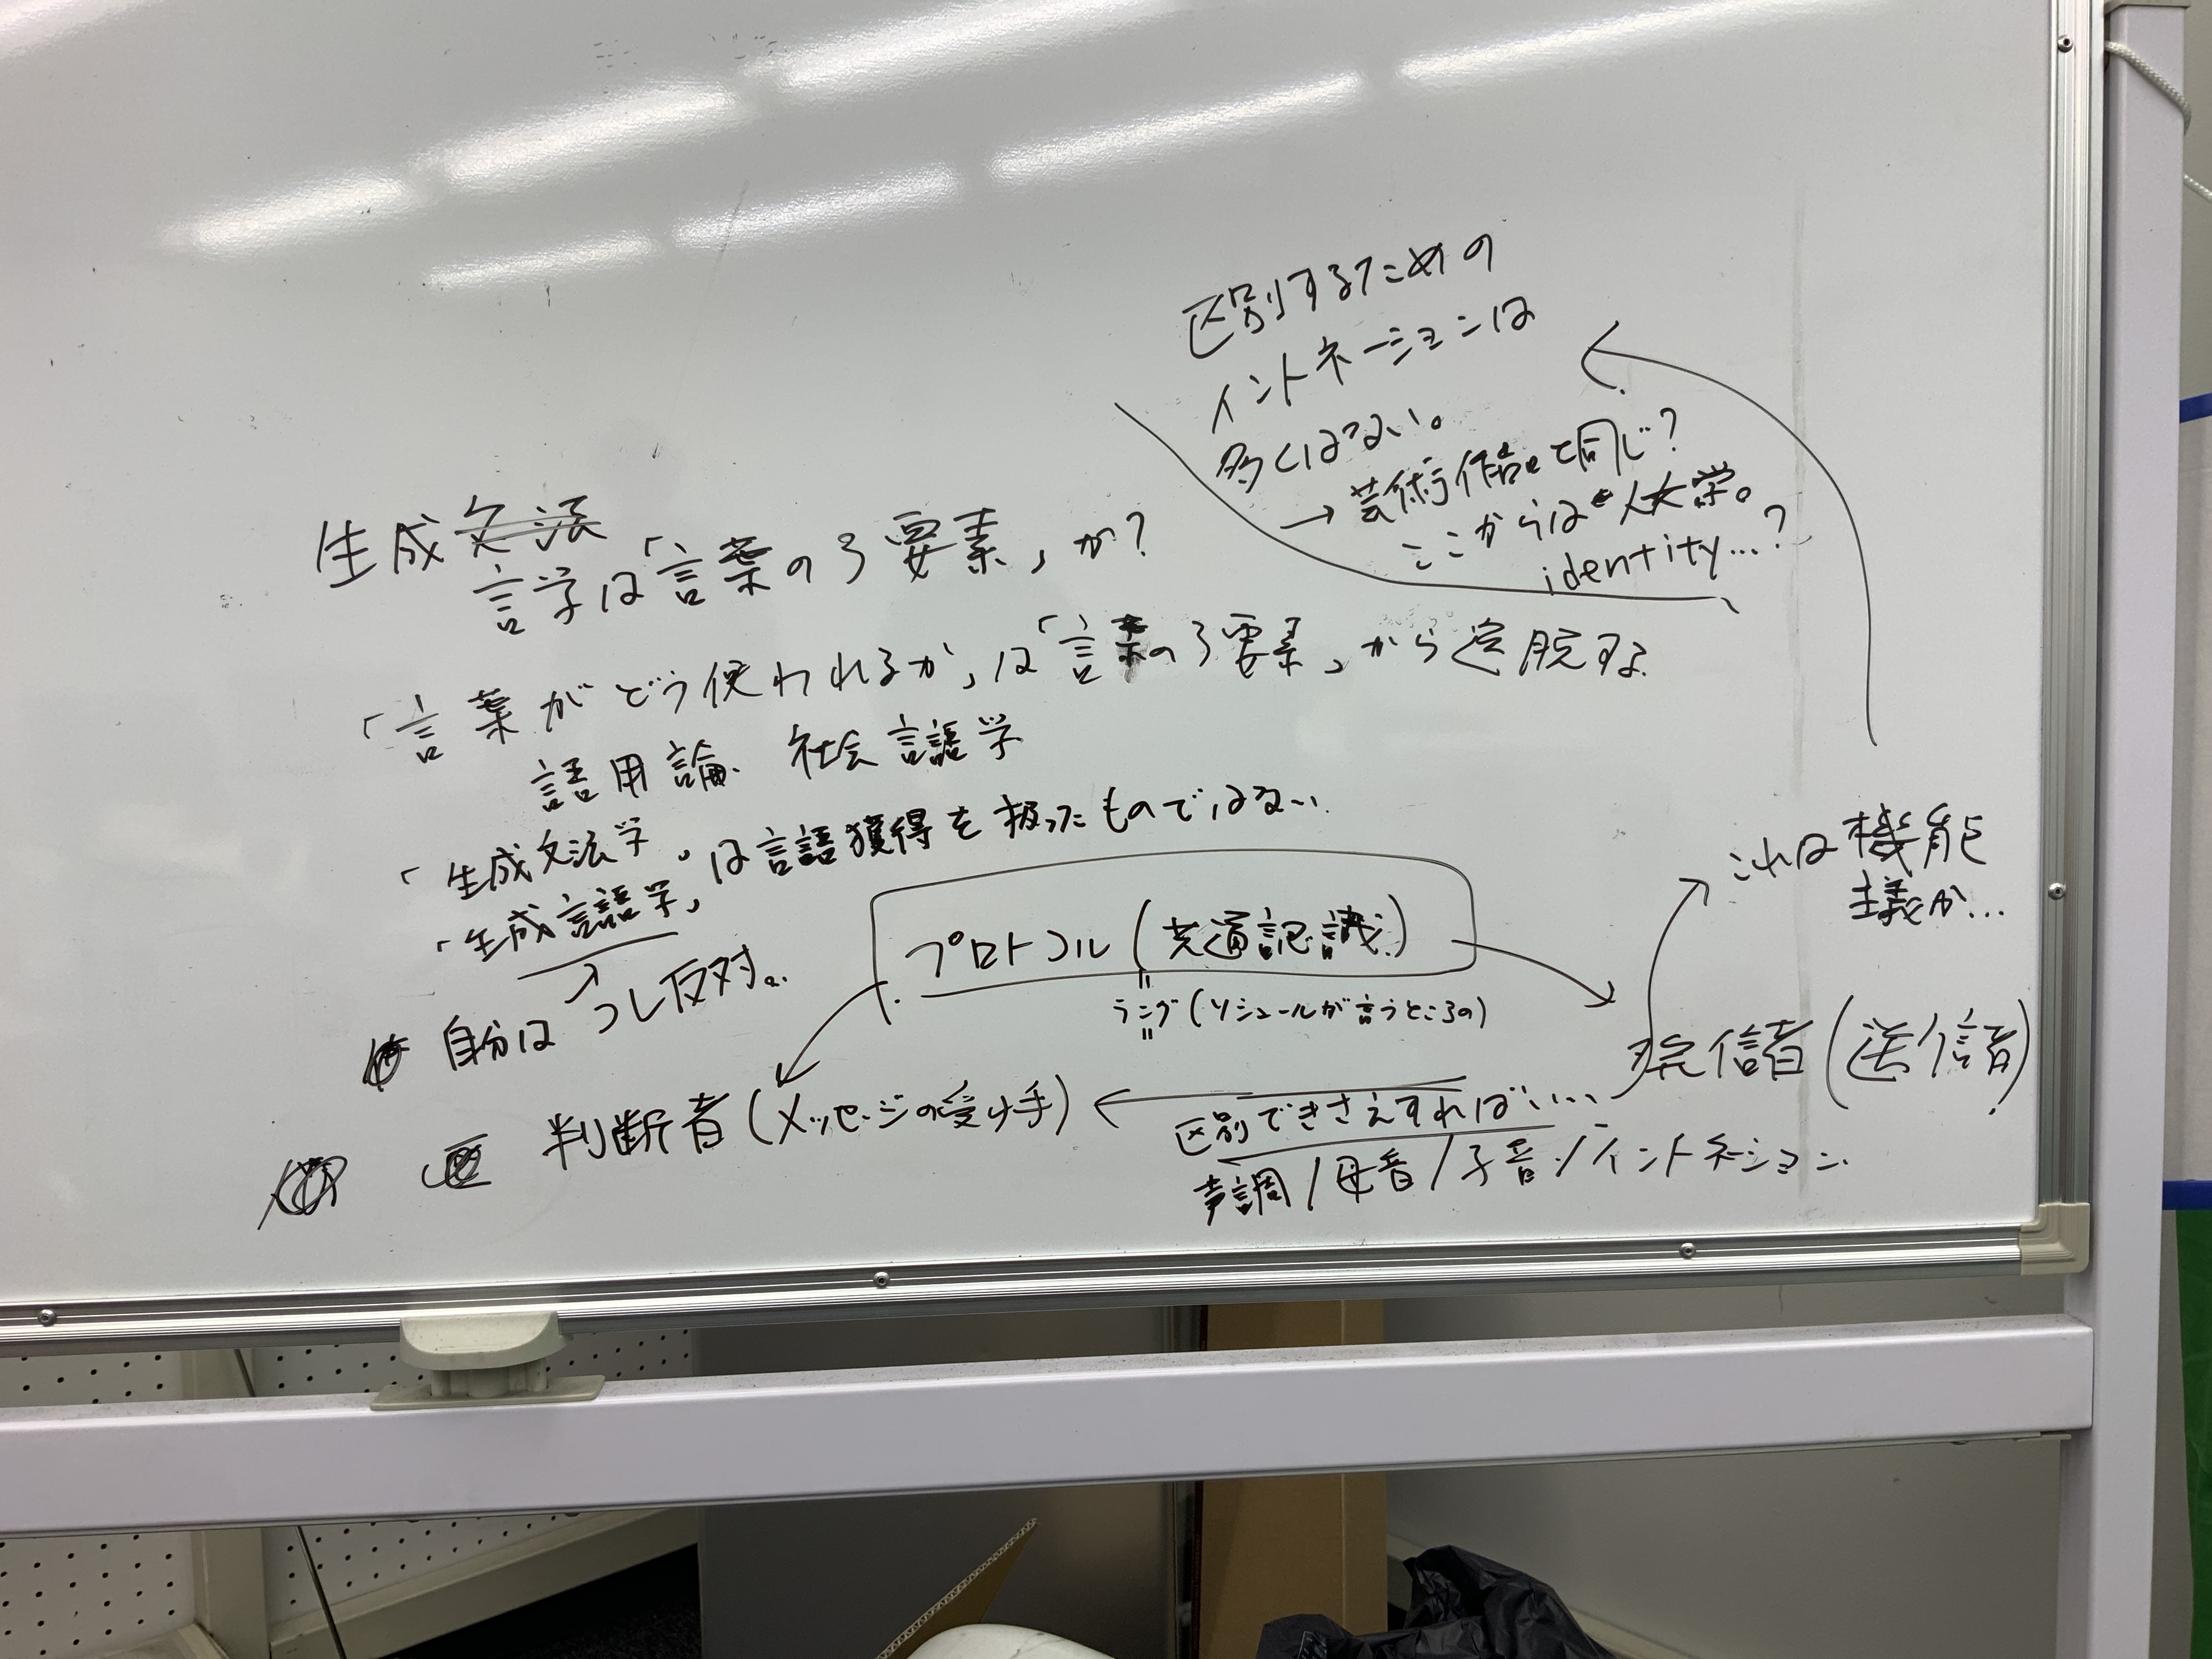 区別するための
イントネーションは
多くはない。
→芸術作品と同じ?
ここからは人文学。
identity...?
生成文法
言学は「言葉の3要素」か?
「言葉がどう使われるか」は「言葉の3要素」から逸脱する
語用論、社会言語学
「生成文法学」は言語獲得を扱ったものではない.
「生成言語学」
自分は コレ反対。
プロトコル(共通認識)
ラング(ソシュールが言うところの)
これは機能
主義か...
発信者(送信者)
判断者(メッセージの受け手)
区別できさえすればいい
声調/母音/子音/イントネーション